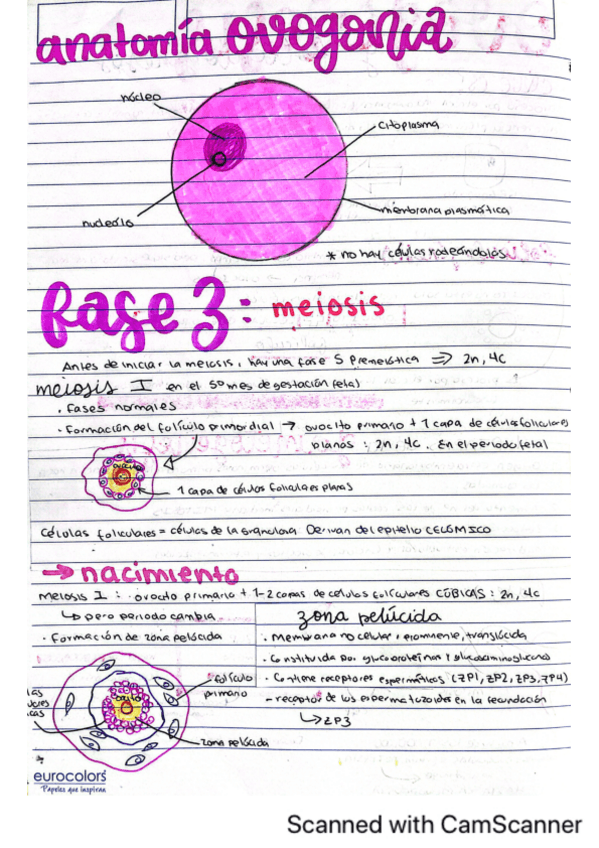 anatomía ovogonia
núcleo
citoplasma
nucleolo
membrana plasmática
* no hay células rodeándolos
fase 3: meiosis
Antes de iniciar la meiosis, hay una fase S premeiótica ⇒ 2n, 4c
meiosis I en el 5º mes de gestación fetal
• Fases normales
• Formación del folículo primordial → ovocito primario + 1 capa de células foliculares
planas : 2n, 4c. En el periodo fetal
ovocito
1 capa de células foliculares planas
Células foliculares = células de la granulosa Derivan del epitelio CELÓMICO
→ nacimiento
meiosis I : ovocito primario + 1-2 capas de células foliculares CÚBICAS : 2n, 4c
↳ pero periodo cambia
• Formación de zona pelúcida
zona pelúcida
• Membrana no celular, translúcida
• Constituida por glucoproteínas y glucosaminoglucanos
• Contiene receptores espermáticos (ZP1, ZP2, ZP3, ZP4)
- receptor de los espermatozoides en la fecundación
↳ ZP3
folículo
primario
zona pelúcida
eurocolors
Papeles que inspiran
Scanned with CamScanner